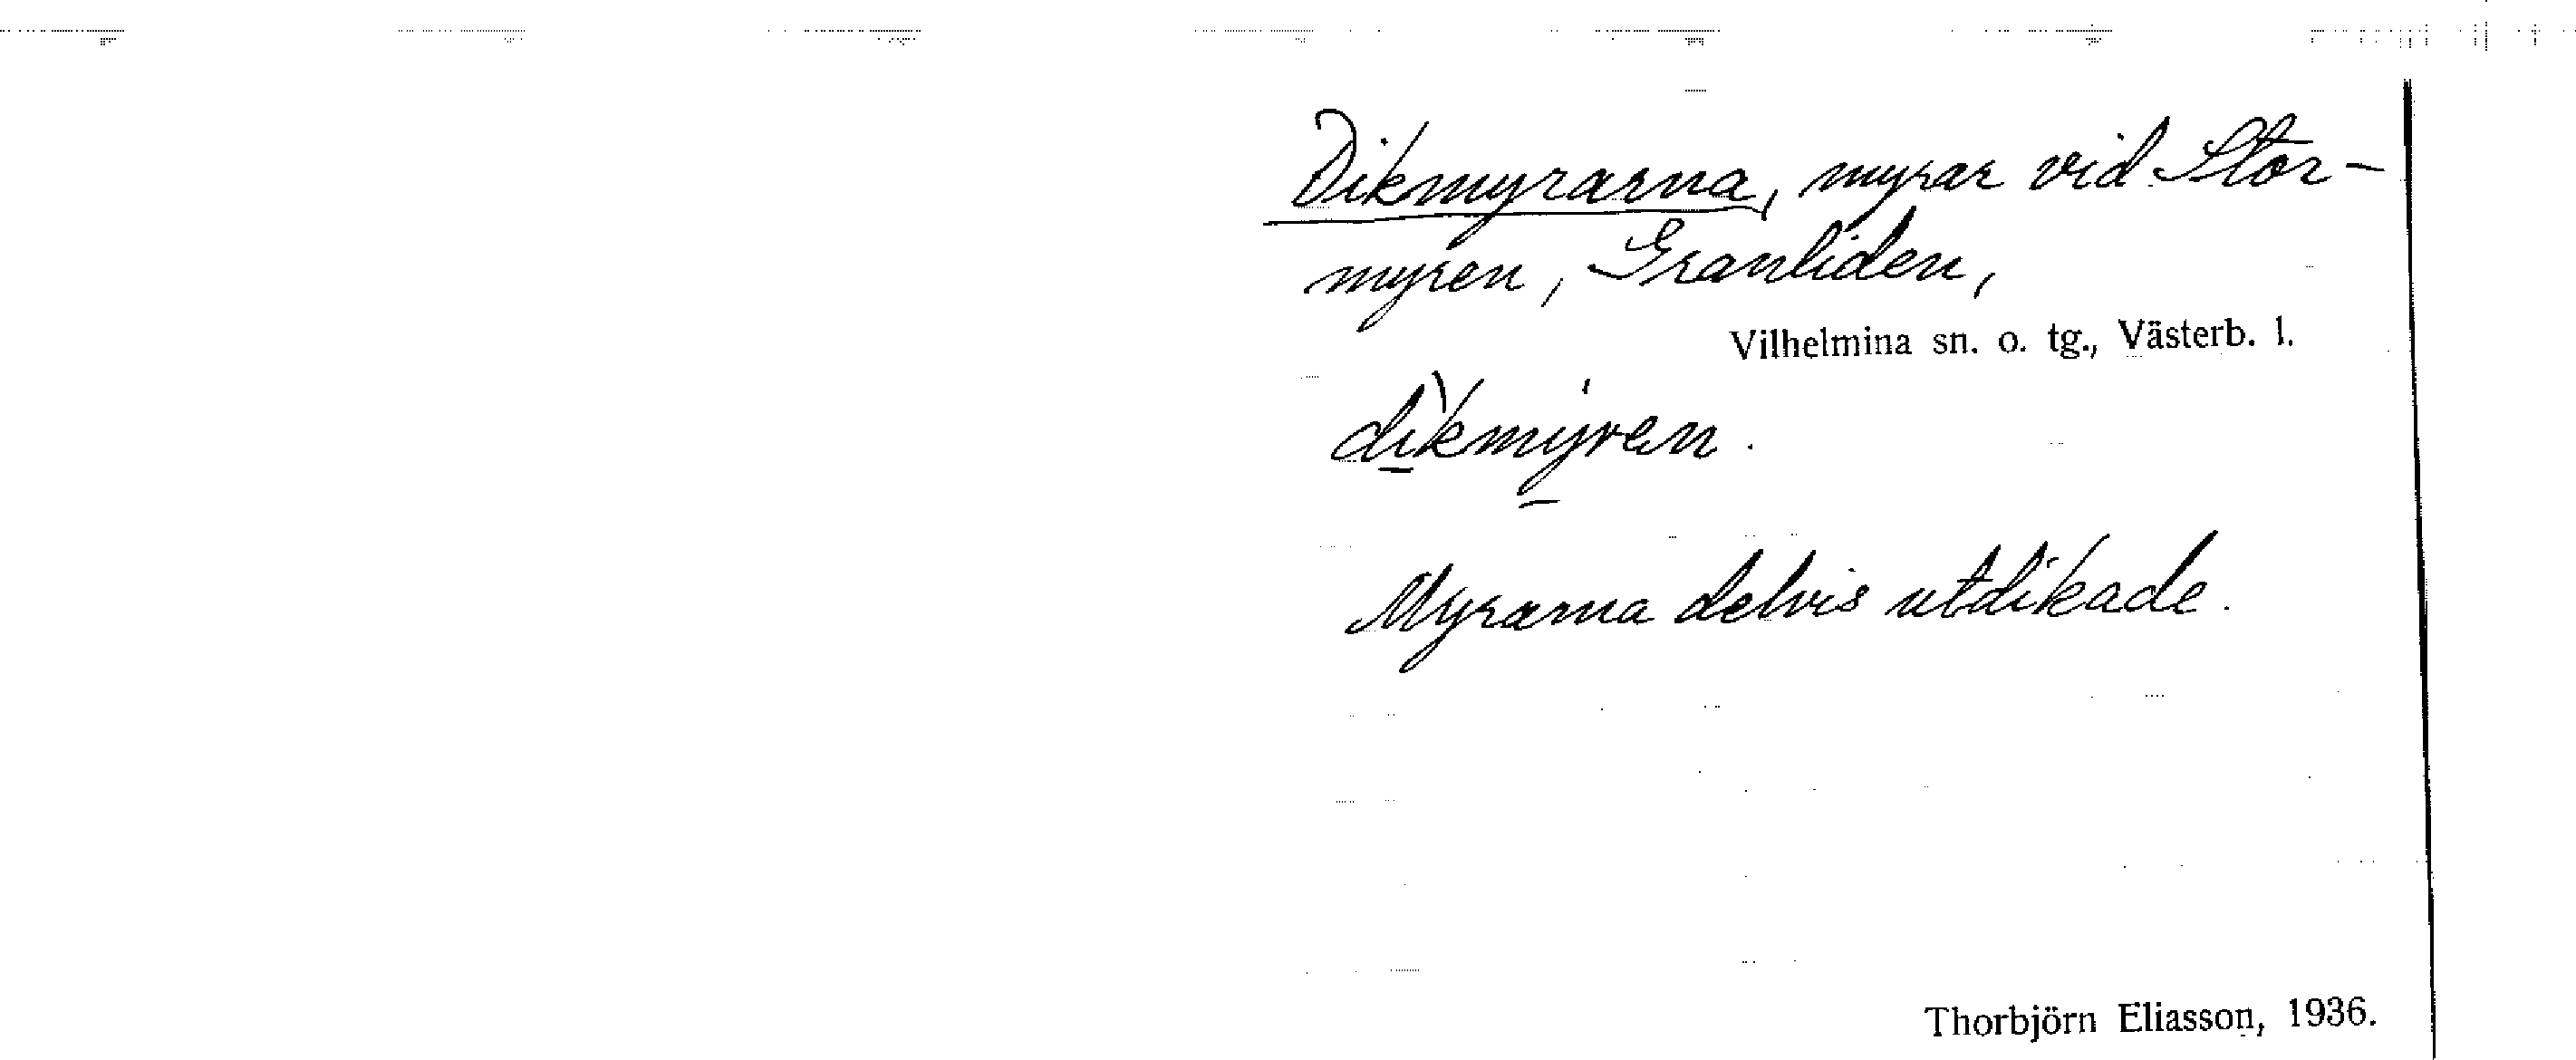 Dikmyrarna, myrar vid Stor-
myren, Granliden,
Vilhelmina sn. o. tg., Västerb. l.
dì̱kmy̱ren.
Myrarna delvis utdikade.
Thorbjörn Eliasson, 1936.